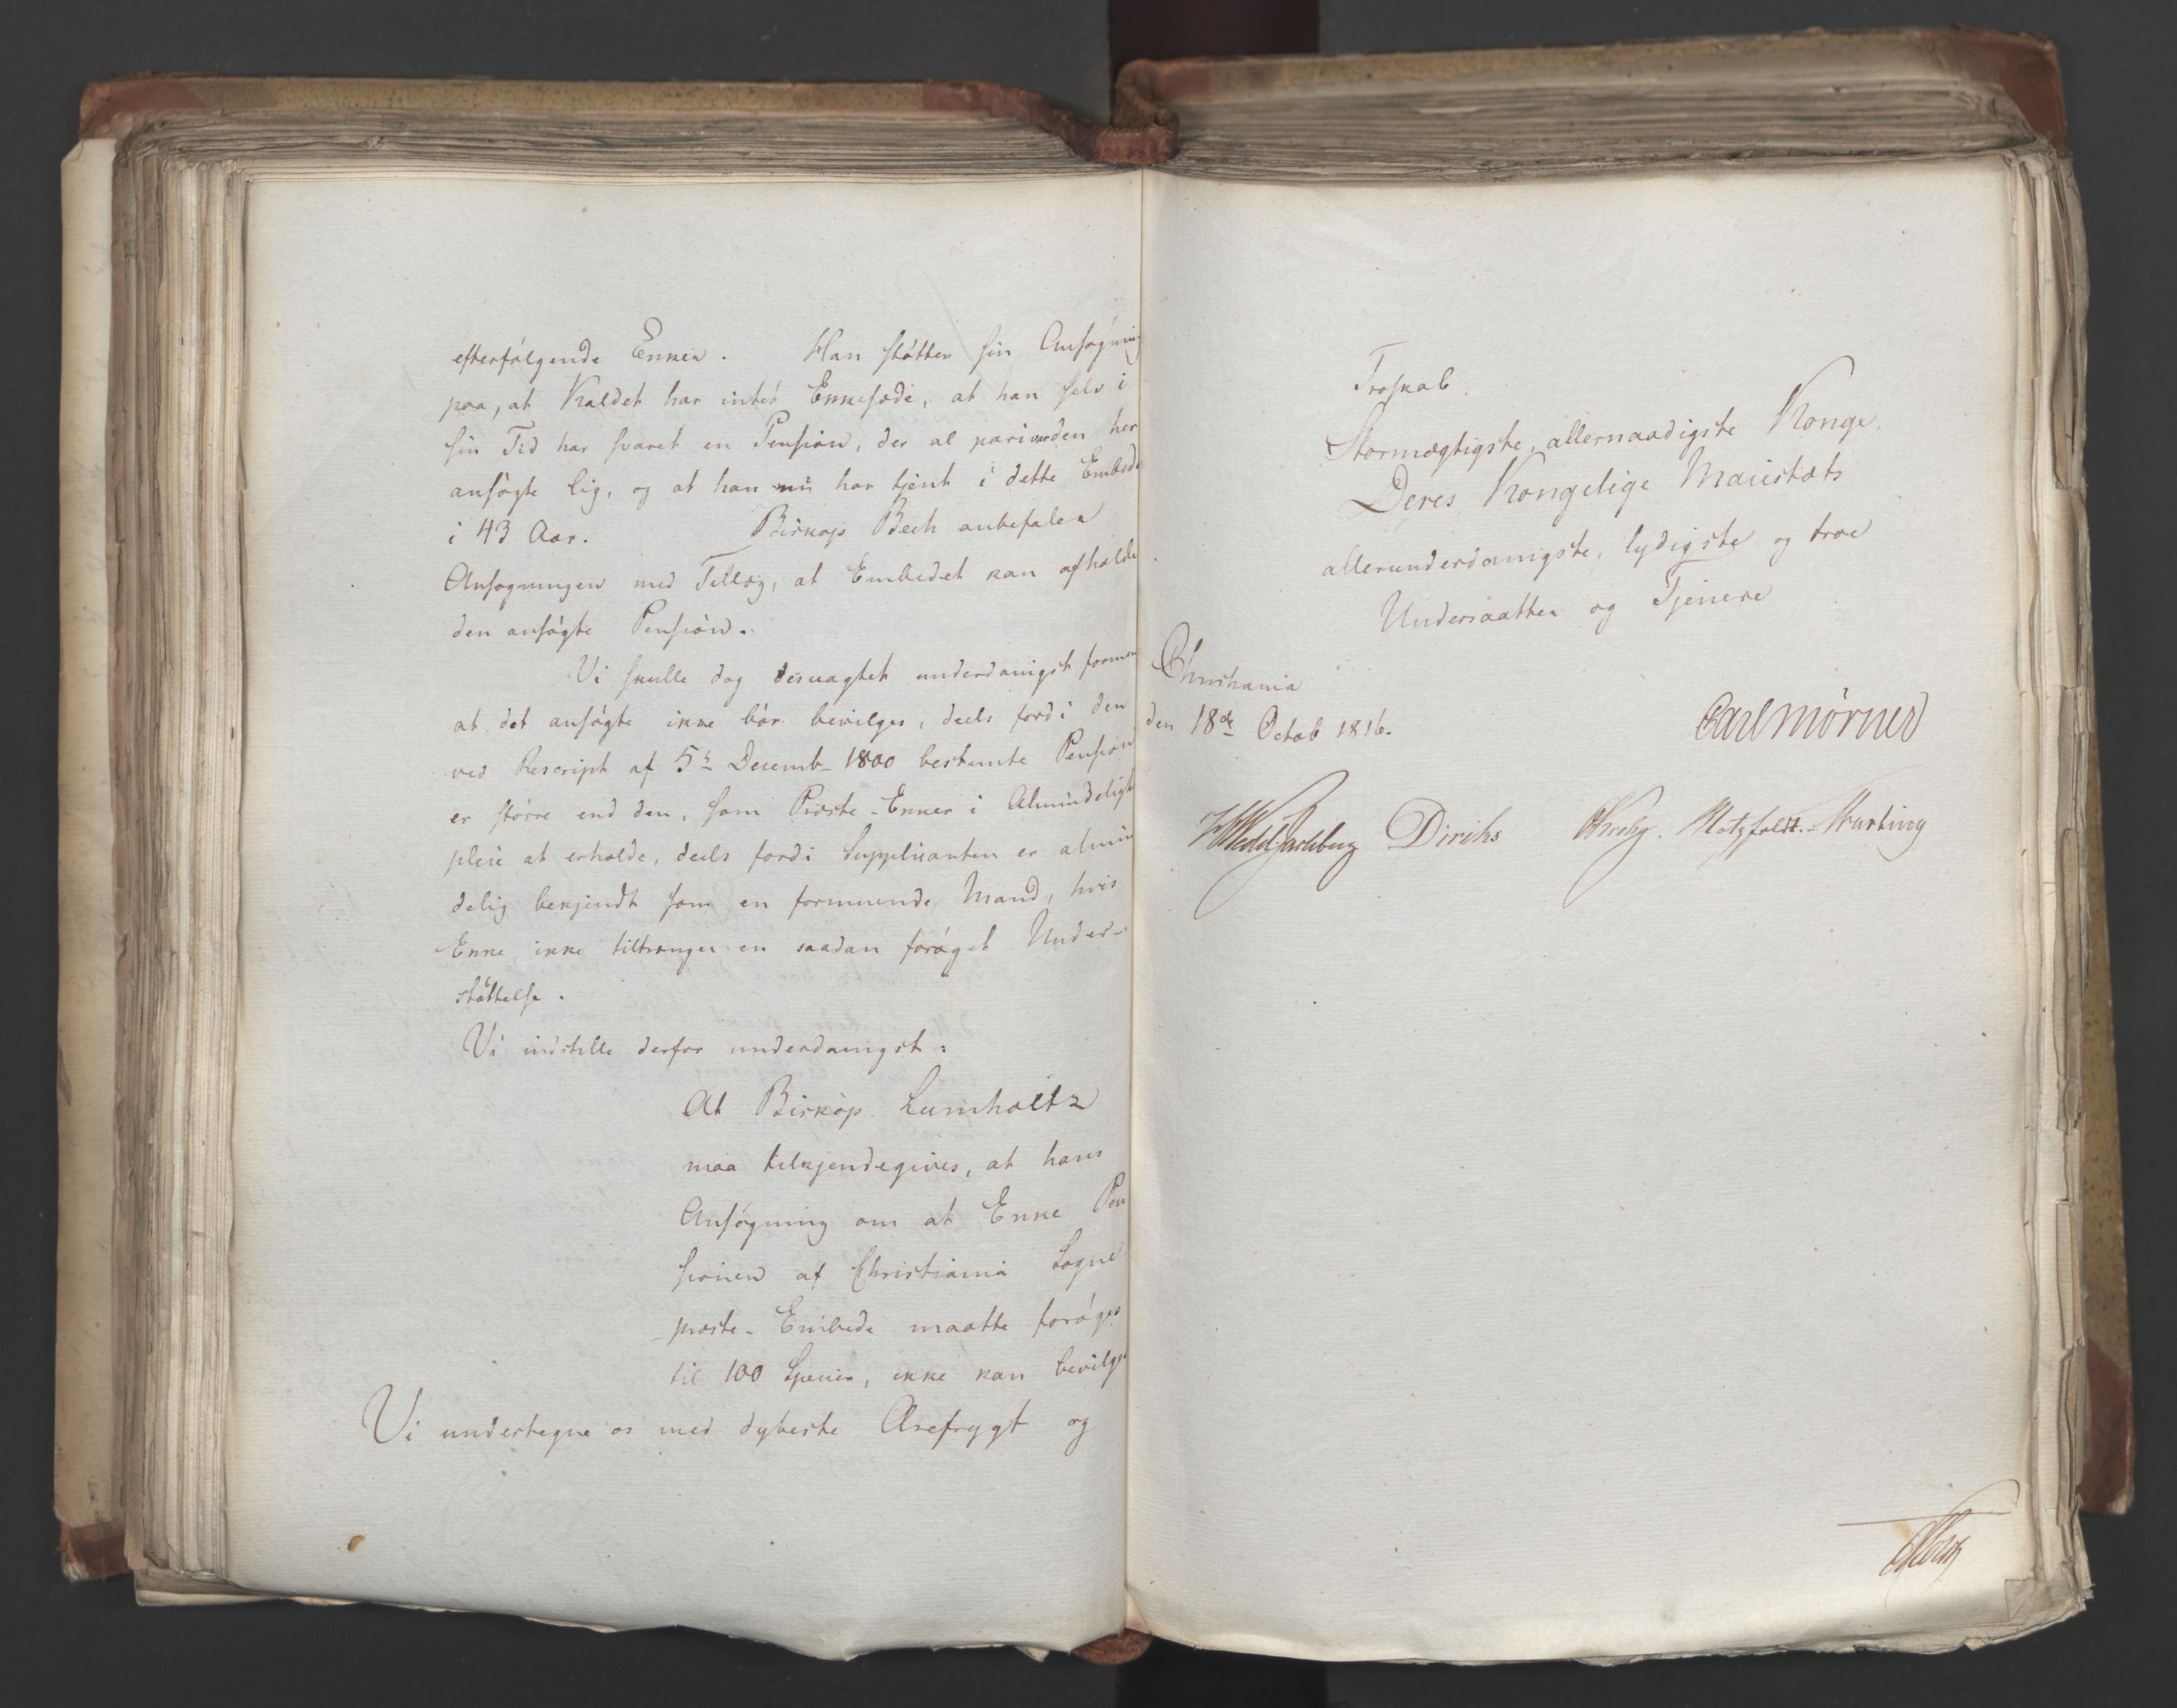 efterfølgende Enker. Han støtter sin Ansøgning
paa, at Kaldet har intet Enkesæde, at han selv i
sin Tid har svaret en Pension, der al pari var den her
ansøgte lig, og at han nu har tjent i dette Embede
i 43 Aar. Biskop Bech anbefaler
Ansøgningen med Tillæg, at Embedet kan afholde
den ansøgte Pension.
Vi skulle dog desuagtet underdanigst formene
at det ansøgte ikke bør bevilges, deels fordi den
ved Rescript af 5te Decemb. 1800 bestemte Pension
er større end den, som Præste-Enker i Almindelighed
pleie at erholde, deels fordi Supplicanten er almin
delig bekjendt som en formuende Mand, hvis
Enke ikke tiltrænger en saadan forøget Under-
støttelse.
Vi indstille derfor underdanigst:
At Biskop Lumholtz
maa tilkjendegives, at hans
Ansøgning om at Enke Pen
sionen af Christiania Sogne
præste-Embede maatte forøges
til 100 Specier, ikke kan bevilges
Vi undertegne os med dybeste Ærefrygt og
Troskab.
Stormægtigste, allernaadigste Konge,
Deres Kongelige Maiestæts
allerunderdanigste, lydigste og troe
Undersaatter og Tjenere
Christiania
den 18de Octob 1816.
Carl Mörner
HWedelJarlsberg Diriks Krohg. Motzfeldt.